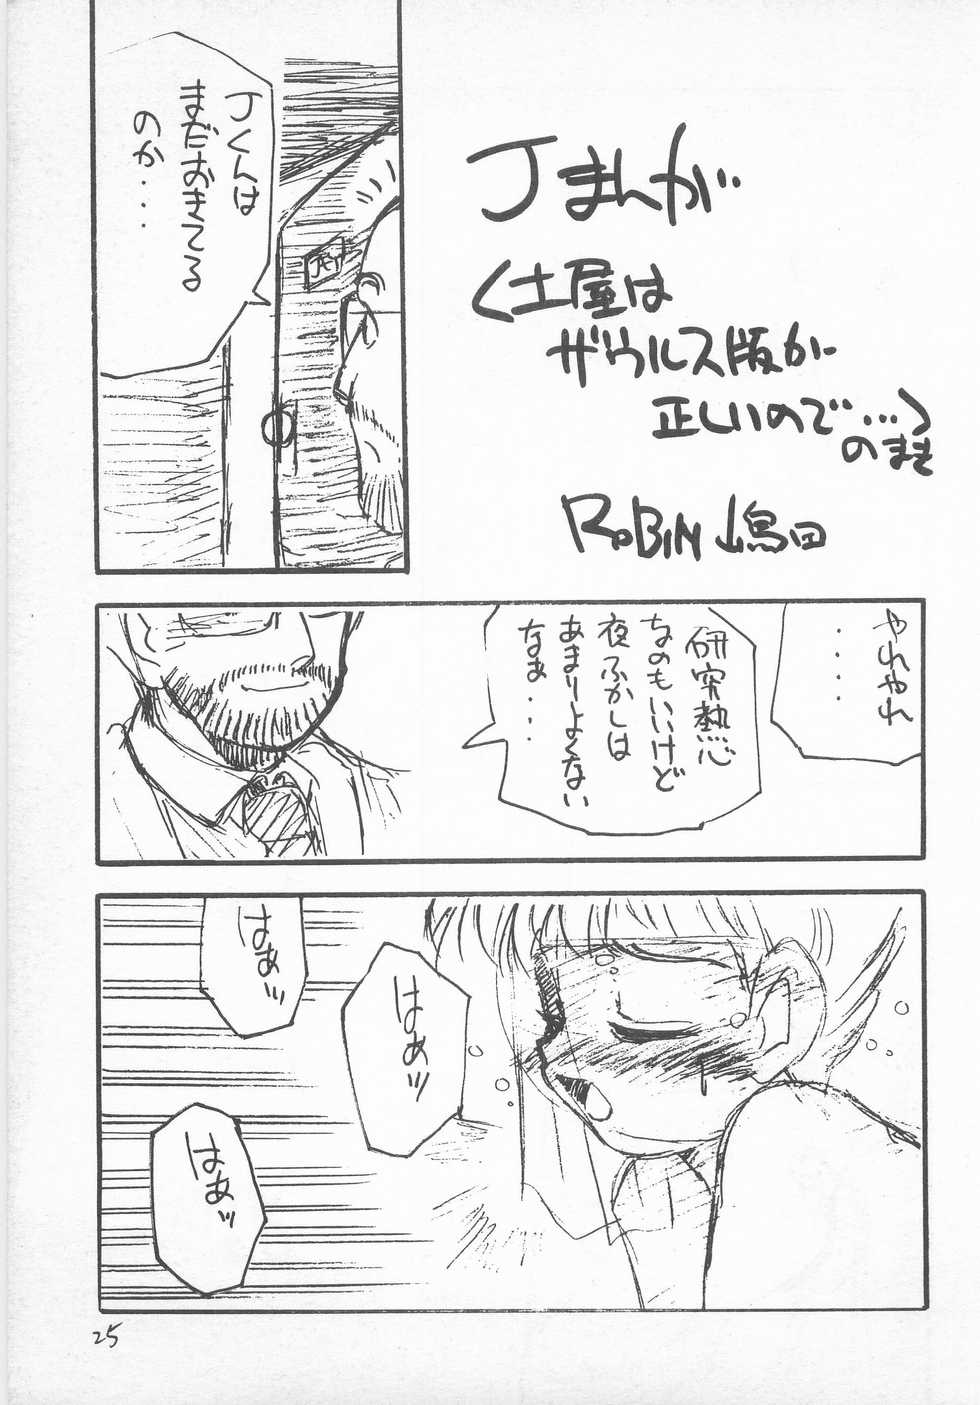 Jまんが
(土屋は
ザウルス版が
正しいので…)
のまき
RoBIN嶋田
Jくんは
まだおきてる
のか・・・
JEY
やれやれ
・・・・
研究熱心
なのもいいけど
夜ふかしは
あまりよくない
なぁ・・・
はぁッ
はぁッ
はぁッ
25